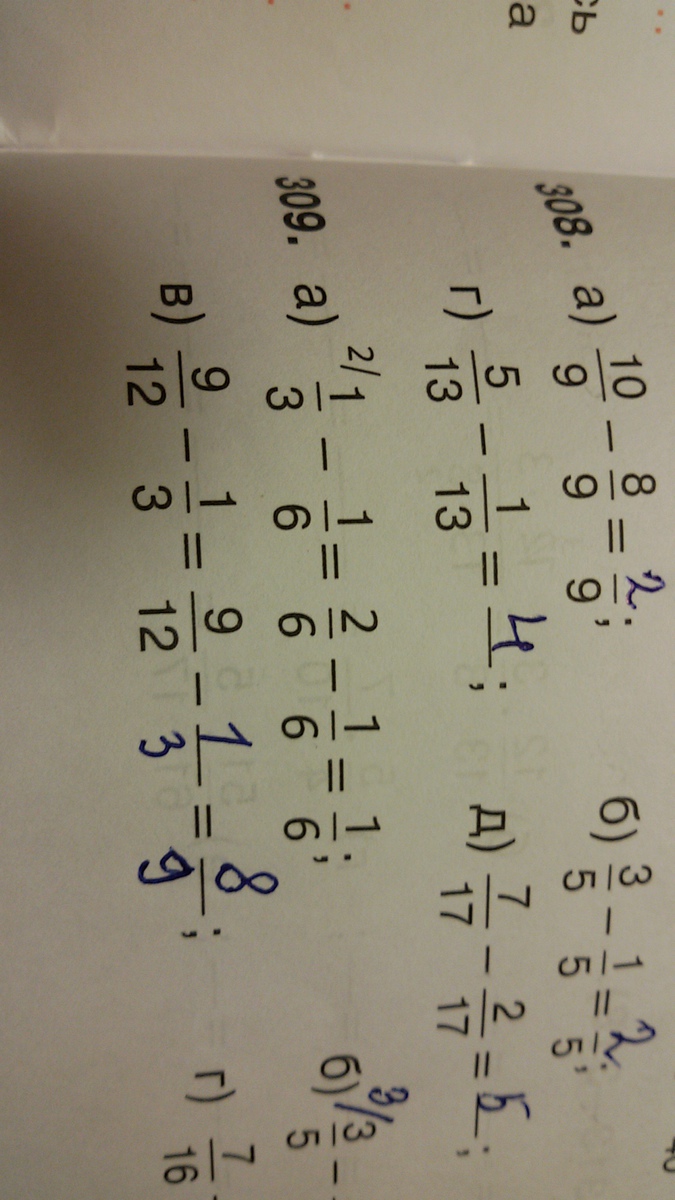 сь
а
308. а) 10/9 − 8/9 = 2/9; б) 3/5 − 1/5 = 2/5;
г) 5/13 − 1/13 = 4/ ; д) 7/17 − 2/17 = 5/ ;
309. а) 2/ 1/3 − 1/6 = 2/6 − 1/6 = 1/6; б) 3/ 3/5 −
в) 9/12 − 1/3 = 9/12 − 1/3 = 8/9; г) 7/16